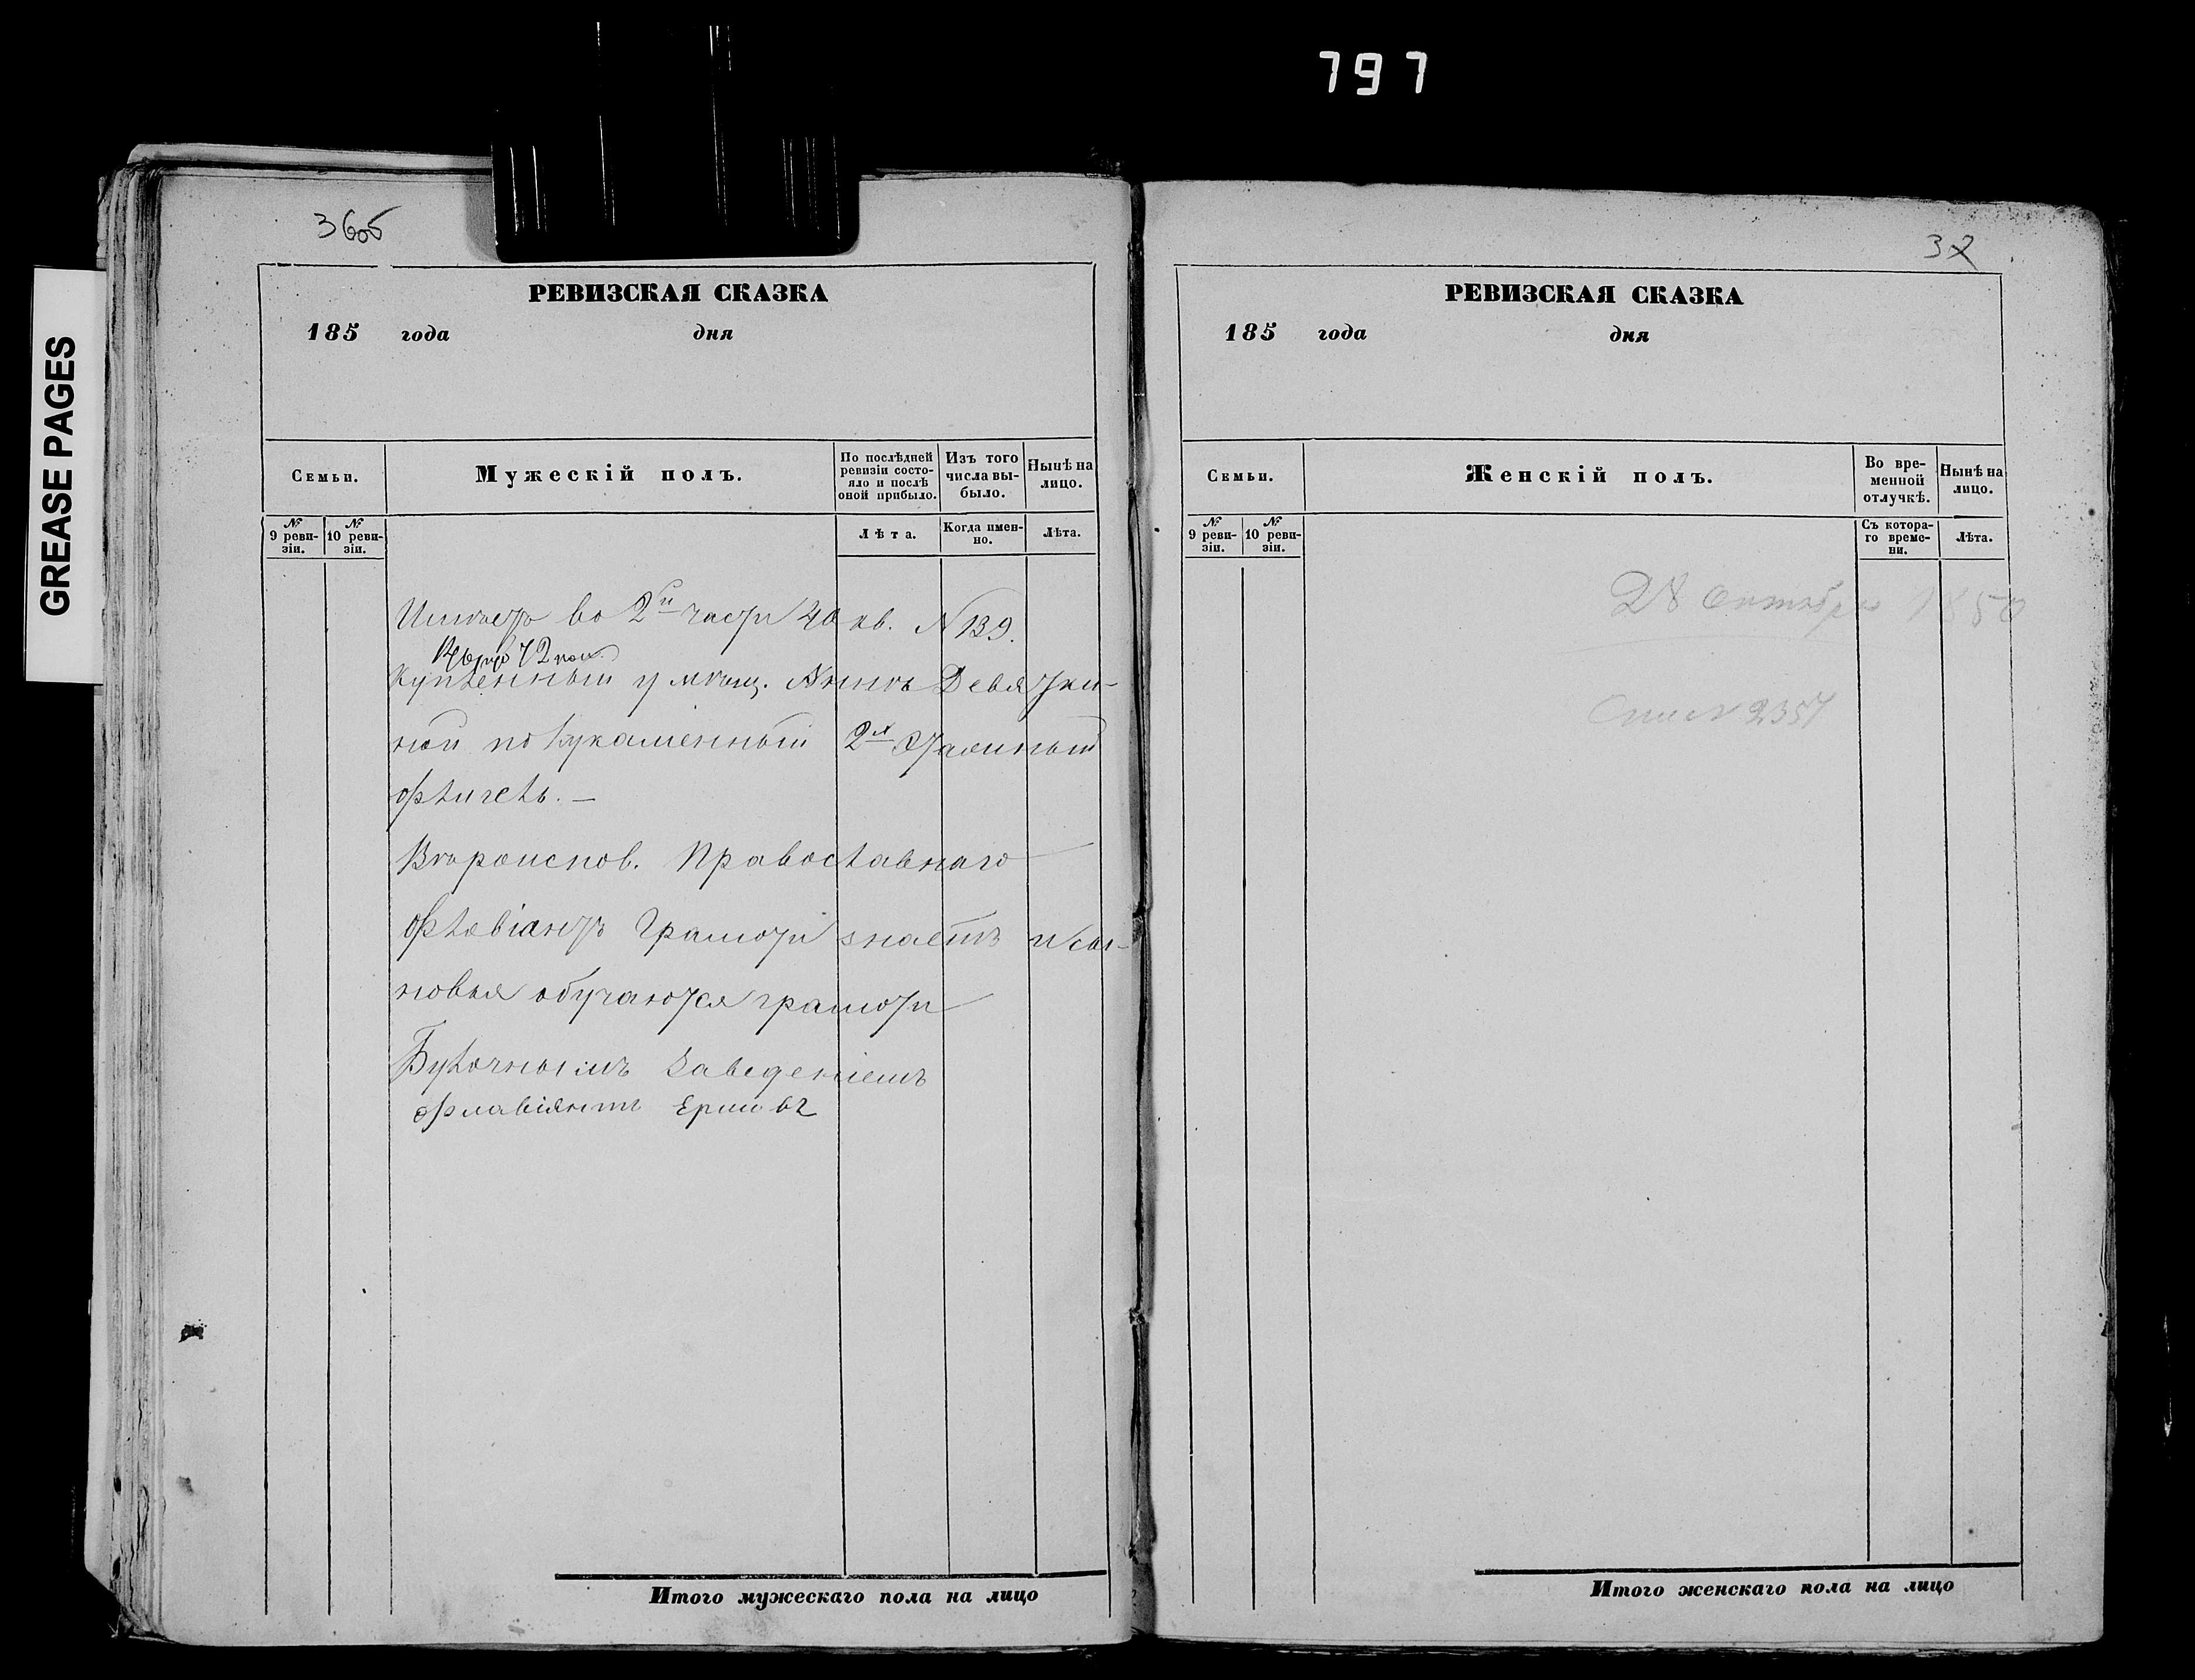 797
GREASE PAGES
36об
РЕВИЗСКАЯ СКАЗКА
185 года дня
Семьи.
Мужескій полъ.
По послѣдней ревизіи состояло и послѣ оной прибыло.
Изъ того числа выбыло.
Нынѣ на лицо.
№ 9 ревизіи.
№ 10 ревизіи.
Лѣта.
Когда именно.
Лѣта.
во 2й части 40 кв. N 139.
Купленный у мѣщ. Аннѣ Девяткиной
полукаменный 2х этажный
флигель. —
Вѣроиспов. Православнаго
Флавіантъ Грамоти знаетъ и сы-
новья обучаются грамоти
Булочнымъ Заведеніемъ
Флавіянтъ Ершовъ
Итого мужескаго пола на лицо
37
РЕВИЗСКАЯ СКАЗКА
185 года дня
Семьи.
Женскій полъ.
Во временной отлучкѣ.
Нынѣ на лицо.
№ 9 ревизіи.
№ 10 ревизіи.
Съ котораго времени.
Лѣта.
28 Октября 1850
2357
Итого женскаго пола на лицо